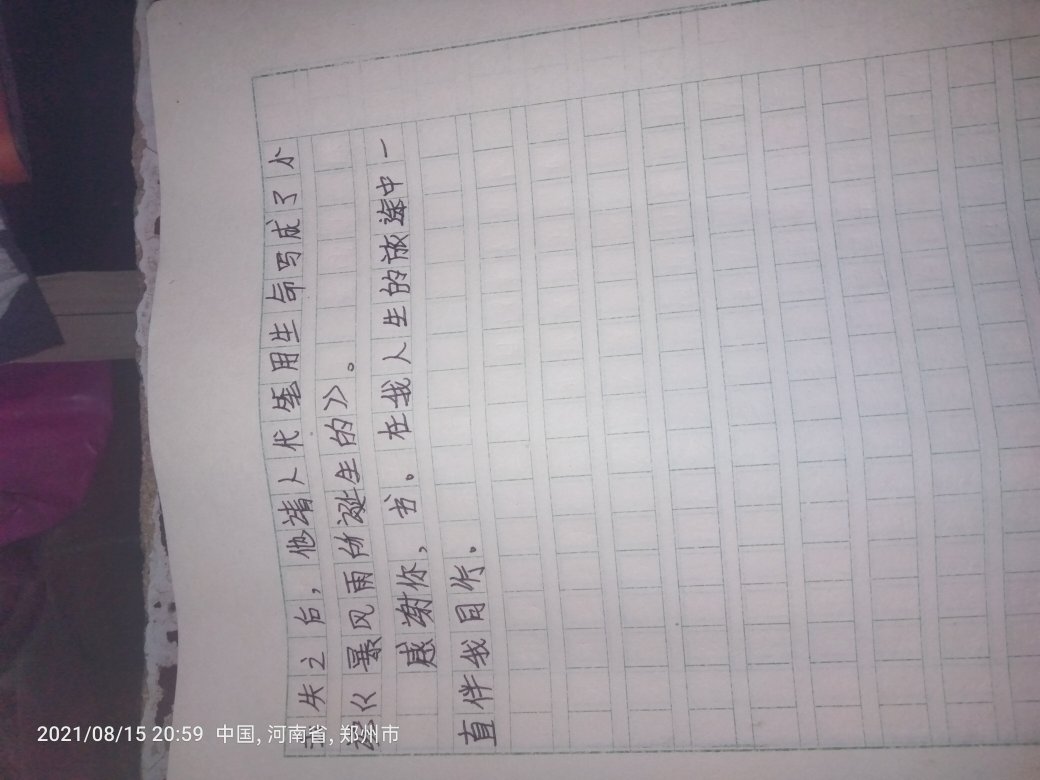 失之后，他请人代笔用生命写成了小
《暴风雨所诞生的》。
感谢你，书。在我人生的旅途中一
直伴我同行。
2021/08/15 20:59 中国, 河南省, 郑州市